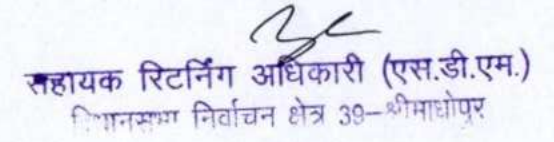 सहायक रिटर्निंग अधिकारी (एस.डी.एम.)
विधानसभा निर्वाचन क्षेत्र 39-श्रीमाधोपुर